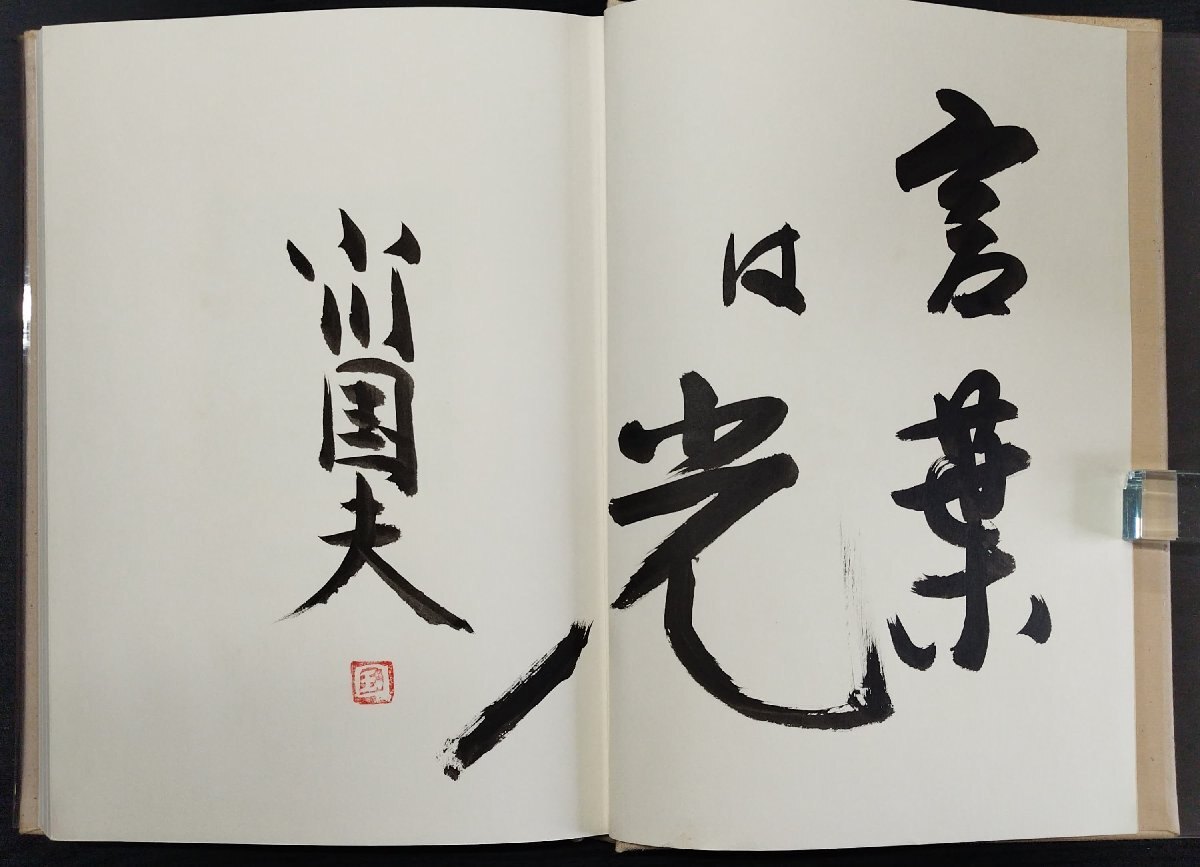 言葉
は光
小川国夫
国